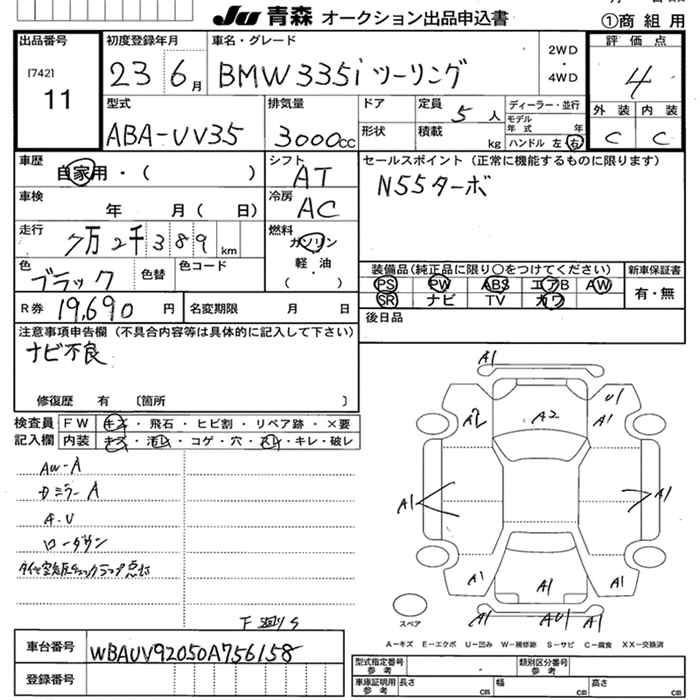 JU 青森 オークション出品申込書
①商 組 用
出品番号
[742]
11
初度登録年月
23 6月
車名・グレード
BMW335i ツーリング
2WD
・
4WD
評 価 点
4
外 装 内 装
C C
型式
ABA-UV35
排気量
3000cc
ドア
形状
定員 5 人
積載 kg
ディーラー・並行
モデル
年 式 年
ハンドル 左 右
車歴
自家用・( )
シフト
AT
セールスポイント(正常に機能するものに限ります)
N55ターボ
車検
年 月 ( 日)
冷房
AC
走行
7万2千389km
燃料
ガソリン
軽・油
( ・ )
色
ブラック
色替
色コード
装備品(純正品に限り〇をつけてください)
PS PW ABS エアB AW
SR ナビ TV カワ
新車保証書
有・無
R券 19,690 円
名変期限 月 日
後日品
注意事項申告欄(不具合内容等は具体的に記入して下さい)
ナビ不良
修復歴 有 〔箇所 〕
検査員
記入欄
FW キズ・飛石・ヒビ割・リペア跡・×要
内装 キズ・汚レ・コゲ・穴・スレ・キレ・破レ
AW-A
Dミラー A
A・U
ローダウン
タイヤ空気圧チェックランプ点灯
F廻りS
A1
A2
A2
U1
A1
A1
A1
A1
A1
A1
A1
AU1
A1
スペア
A-キズ E-エクボ U-凹み W-補修跡 S-サビ C-腐食 XX-交換済
車台番号 WBAUV92050A756158
登録番号
型式指定番号
参 考
類別区分番号
参 考
車庫証明用
参 考
長さ cm
幅 cm
高さ cm